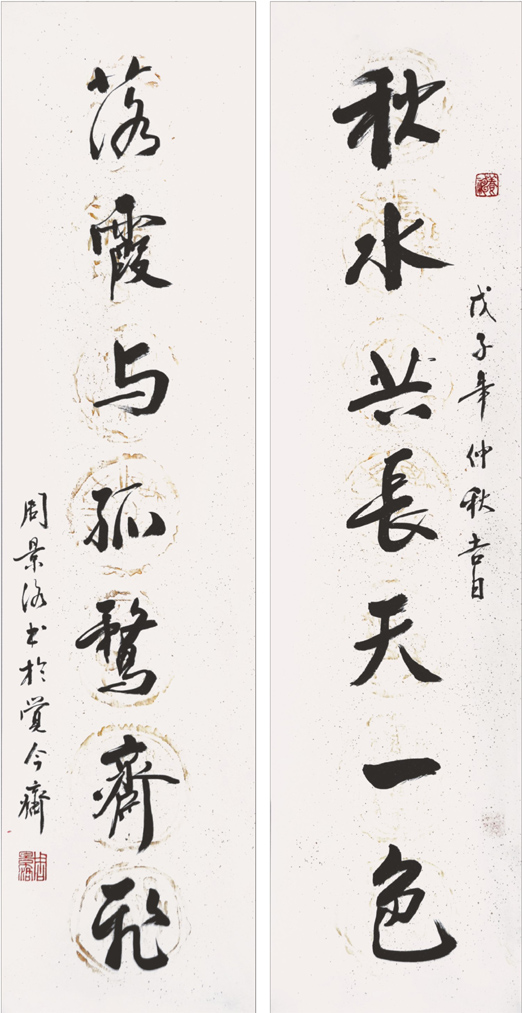 戊子年仲秋吉日
秋水共長天一色
落霞与孤鹜齊飛
周景洛书於觉今齋